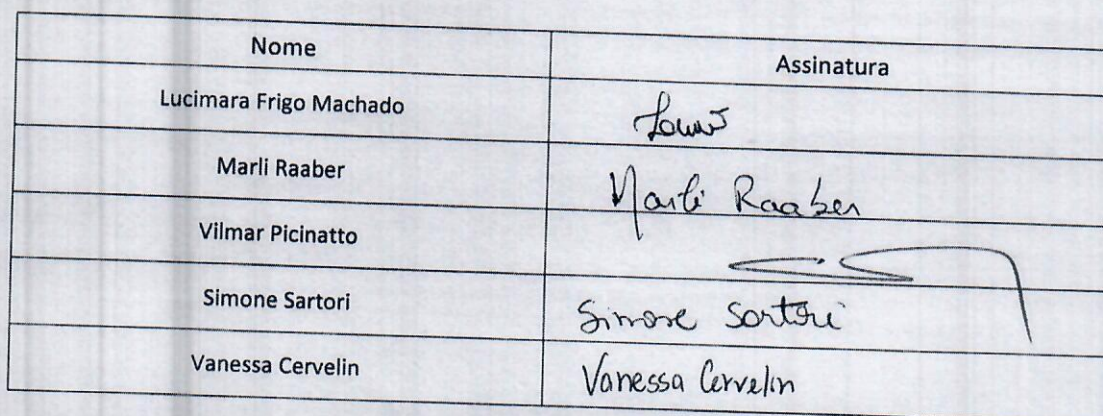 Nome Assinatura
Lucimara Frigo Machado
Marli Raaber Marli Raaber
Vilmar Picinatto
Simone Sartori Simone Sartori
Vanessa Cervelin Vanessa Cervelin